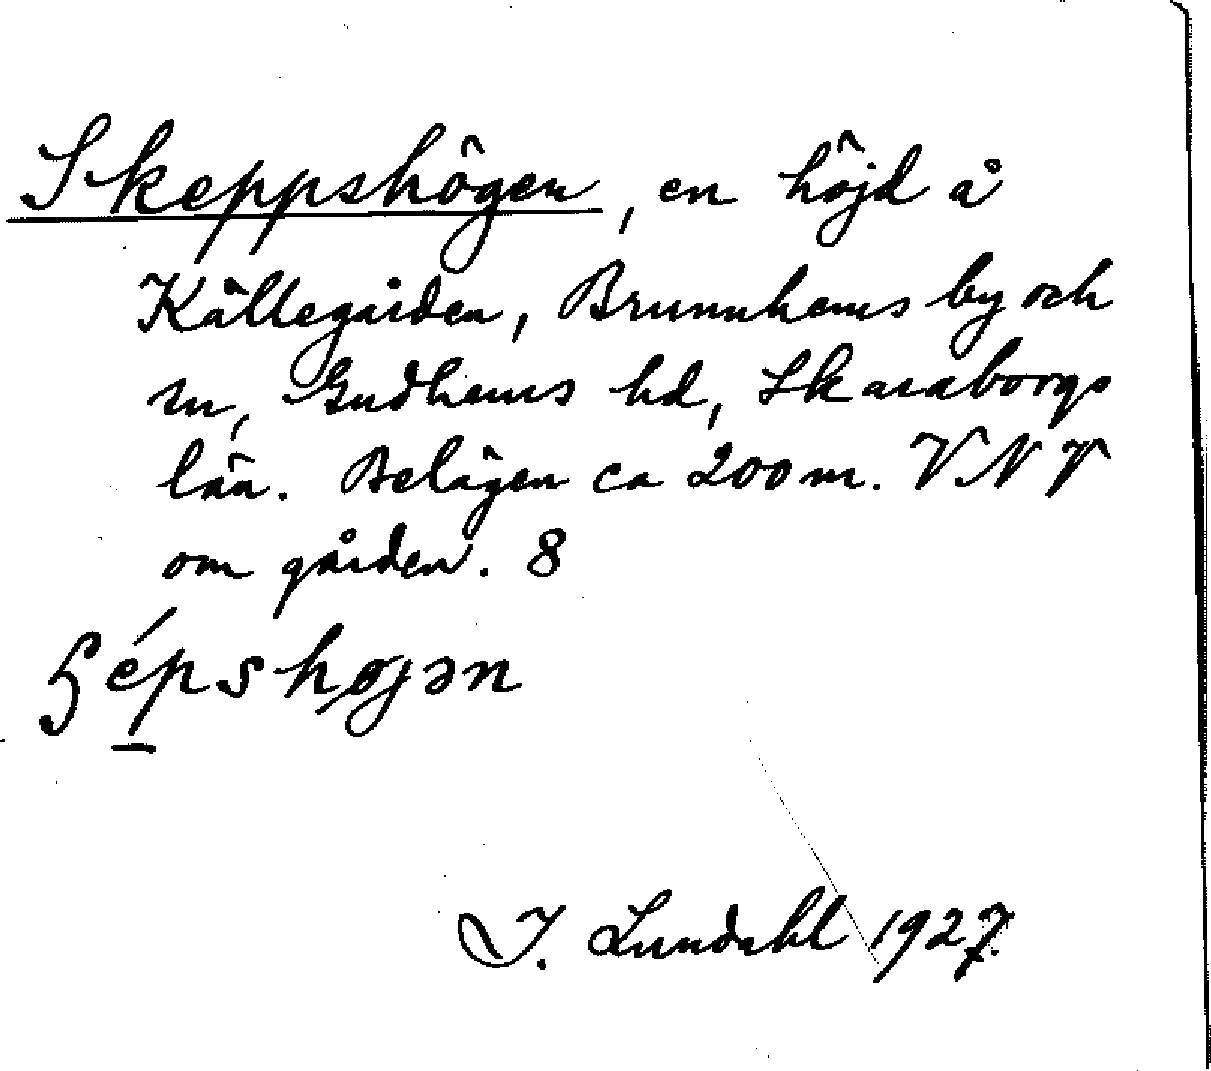 Skeppshögen, en höjd å
Källegården, Brunnhems by och
sn, Gudhems hd, Skaraborgs
län. Belägen ca 200 m. VNV
om gården. 8
I. Lundahl 1927.